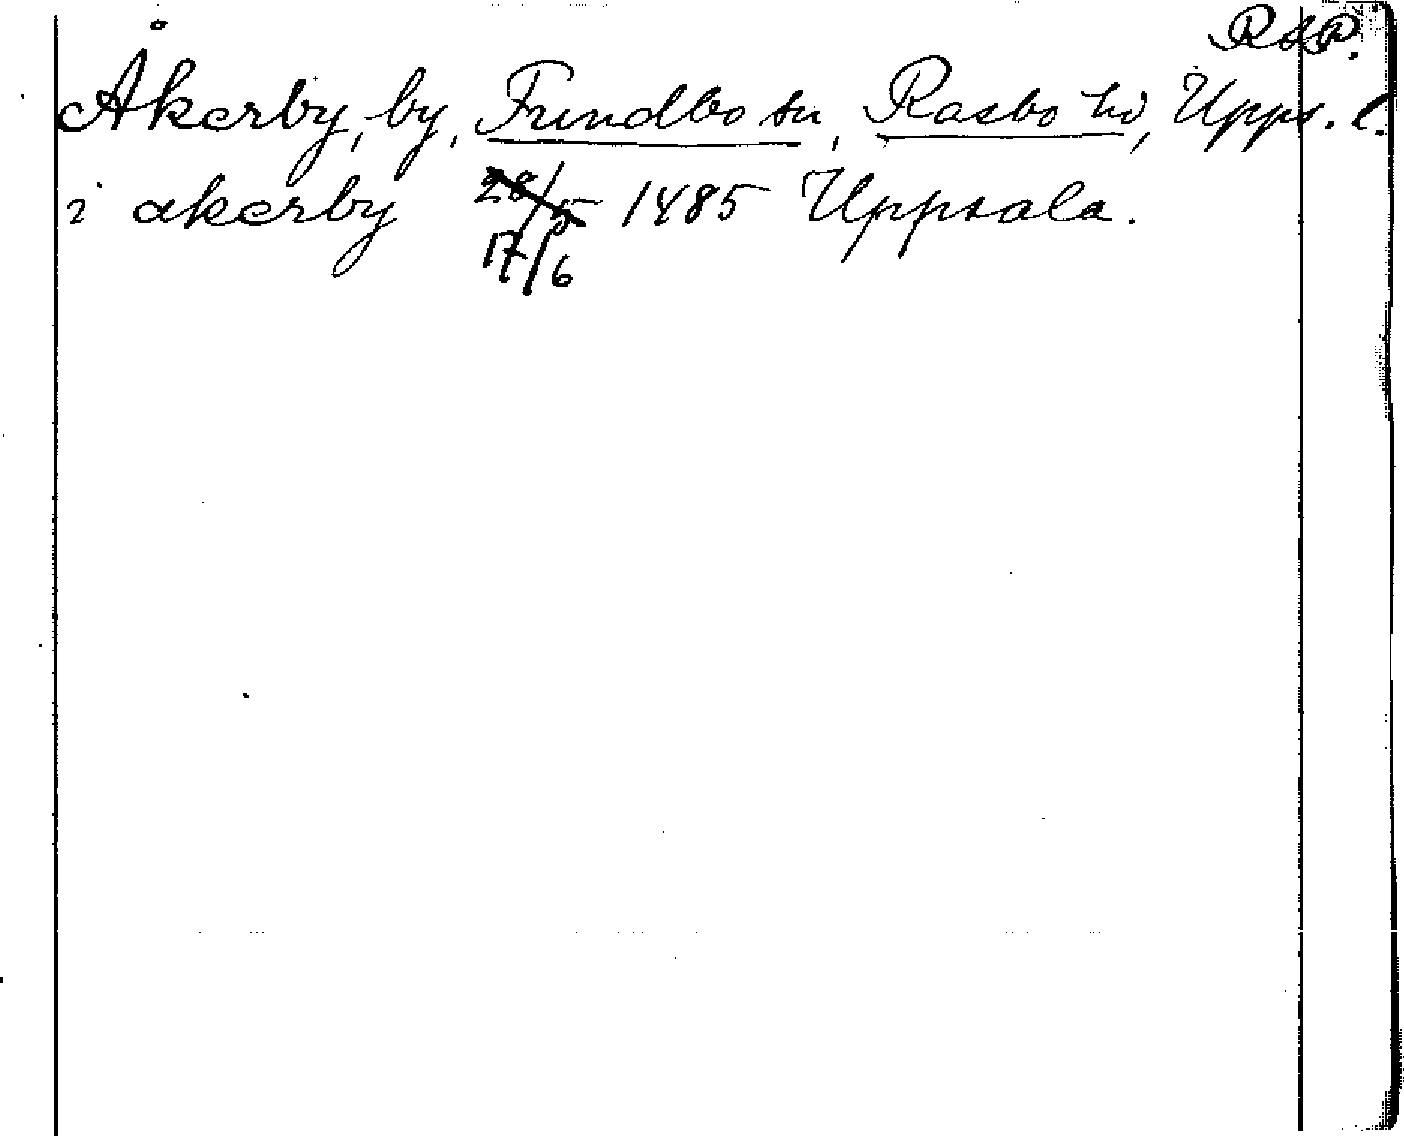 RAP.
Åkerby, by, Fundbo sn, Rasbo hd, Upps. l.
i akerby 28/5 1485 Uppsala.
17/6